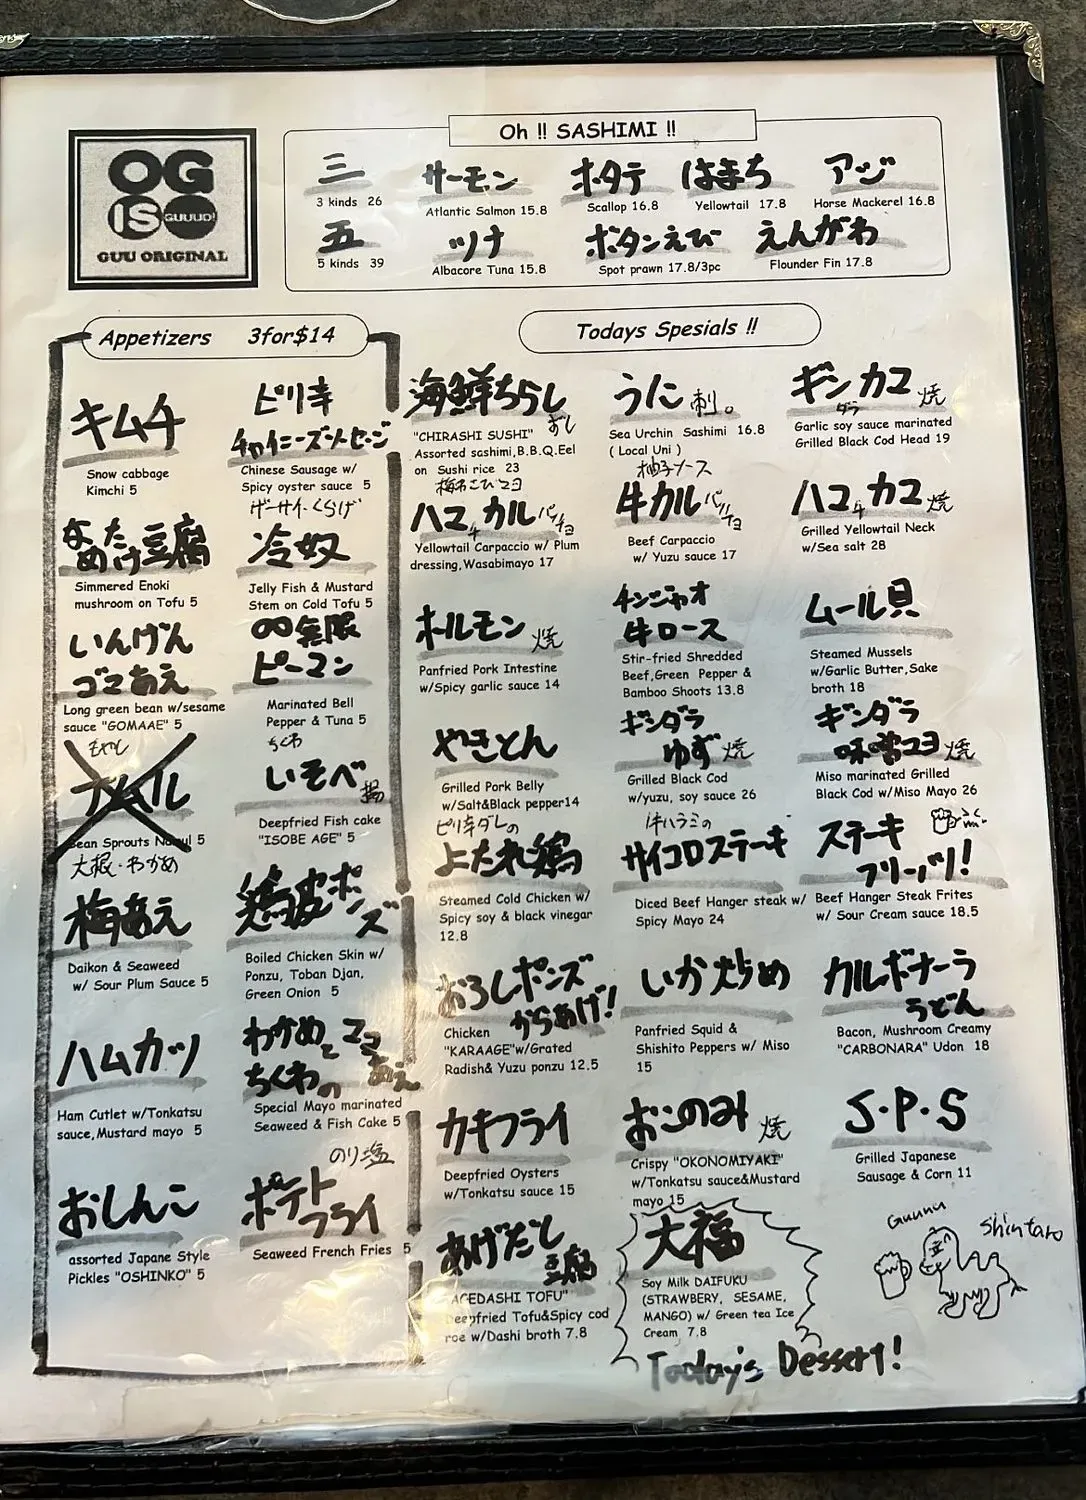 OG
IS GUUUD!
GUU ORIGINAL
Oh !! SASHIMI !!
三
3 kinds 26
サーモン
Atlantic Salmon 15.8
ホタテ
Scallop 16.8
はまち
Yellowtail 17.8
アジ
Horse Mackerel 16.8
五
5 kinds 39
ツナ
Albacore Tuna 15.8
ボタンえび
Spot prawn 17.8/3pc
えんがわ
Flounder Fin 17.8
Appetizers 3for$14
キムチ
Snow cabbage
Kimchi 5
ピリ辛
チャイニーズソーセージ
Chinese Sausage w/
Spicy oyster sauce 5
なめたけ豆腐
Simmered Enoki
mushroom on Tofu 5
ザーサイ・くらげ
冷奴
Jelly Fish & Mustard
Stem on Cold Tofu 5
いんげん
ゴマあえ
Long green bean w/sesame
sauce "GOMAAE" 5
無限
ピーマン
Marinated Bell
Pepper & Tuna 5
もやし
ナムル
Bean Sprouts Namul 5
ちくわ
いそべ揚
Deepfried Fish cake
"ISOBE AGE" 5
大根・わかめ
梅あえ
Daikon & Seaweed
w/ Sour Plum Sauce 5
鶏皮ポンズ
Boiled Chicken Skin w/
Ponzu, Toban Djan,
Green Onion 5
ハムカツ
Ham Cutlet w/Tonkatsu
sauce,Mustard mayo 5
わかめと
ちくわの マヨあえ
Special Mayo marinated
Seaweed & Fish Cake 5
おしんこ
assorted Japane Style
Pickles "OSHINKO" 5
のり塩
ポテト
フライ
Seaweed French Fries 5
Todays Spesials !!
海鮮ちらし
"CHIRASHI SUSHI"
Assorted sashimi,B.B.Q.Eel
on Sushi rice 23
うに刺。
Sea Urchin Sashimi 16.8
( Local Uni )
ギンダラカマ焼
Garlic soy sauce marinated
Grilled Black Cod Head 19
梅わさびマヨ
ハマチカルパッチョ
Yellowtail Carpaccio w/ Plum
dressing,Wasabimayo 17
柚子ソース
牛カルパッチョ
Beef Carpaccio
w/ Yuzu sauce 17
ハマチカマ焼
Grilled Yellowtail Neck
w/Sea salt 28
ホルモン焼
Panfried Pork Intestine
w/Spicy garlic sauce 14
チンジャオ
牛ロース
Stir-fried Shredded
Beef,Green Pepper &
Bamboo Shoots 13.8
ムール貝
Steamed Mussels
w/Garlic Butter,Sake
broth 18
やきとん
Grilled Pork Belly
w/Salt&Black pepper14
ギンダラ
ゆず焼
Grilled Black Cod
w/yuzu, soy sauce 26
ギンダラ
味噌マヨ焼
Miso marinated Grilled
Black Cod w/Miso Mayo 26
ピリ辛ダレの
よだれ鶏
Steamed Cold Chicken w/
Spicy soy & black vinegar
12.8
牛ハラミの
サイコロステーキ
Diced Beef Hanger steak w/
Spicy Mayo 24
ステーキ
フリーバリ!
Beef Hanger Steak Frites
w/ Sour Cream sauce 18.5
おろしポンズ
からあげ!
Chicken
"KARAAGE"w/Grated
Radish& Yuzu ponzu 12.5
いか炒め
Panfried Squid &
Shishito Peppers w/ Miso
15
カルボナーラ
うどん
Bacon, Mushroom Creamy
"CARBONARA" Udon 18
カキフライ
Deepfried Oysters
w/Tonkatsu sauce 15
おこのみ焼
Crispy "OKONOMIYAKI"
w/Tonkatsu sauce&Mustard
mayo 15
S・P・S
Grilled Japanese
Sausage & Corn 11
あげだし
豆腐
"AGEDASHI TOFU"
Deepfried Tofu&Spicy cod
roe w/Dashi broth 7.8
大福
Soy Milk DAIFUKU
(STRAWBERY, SESAME,
MANGO) w/ Green tea Ice
Cream 7.8
Today's Dessert!
Guuuu
Shintaro